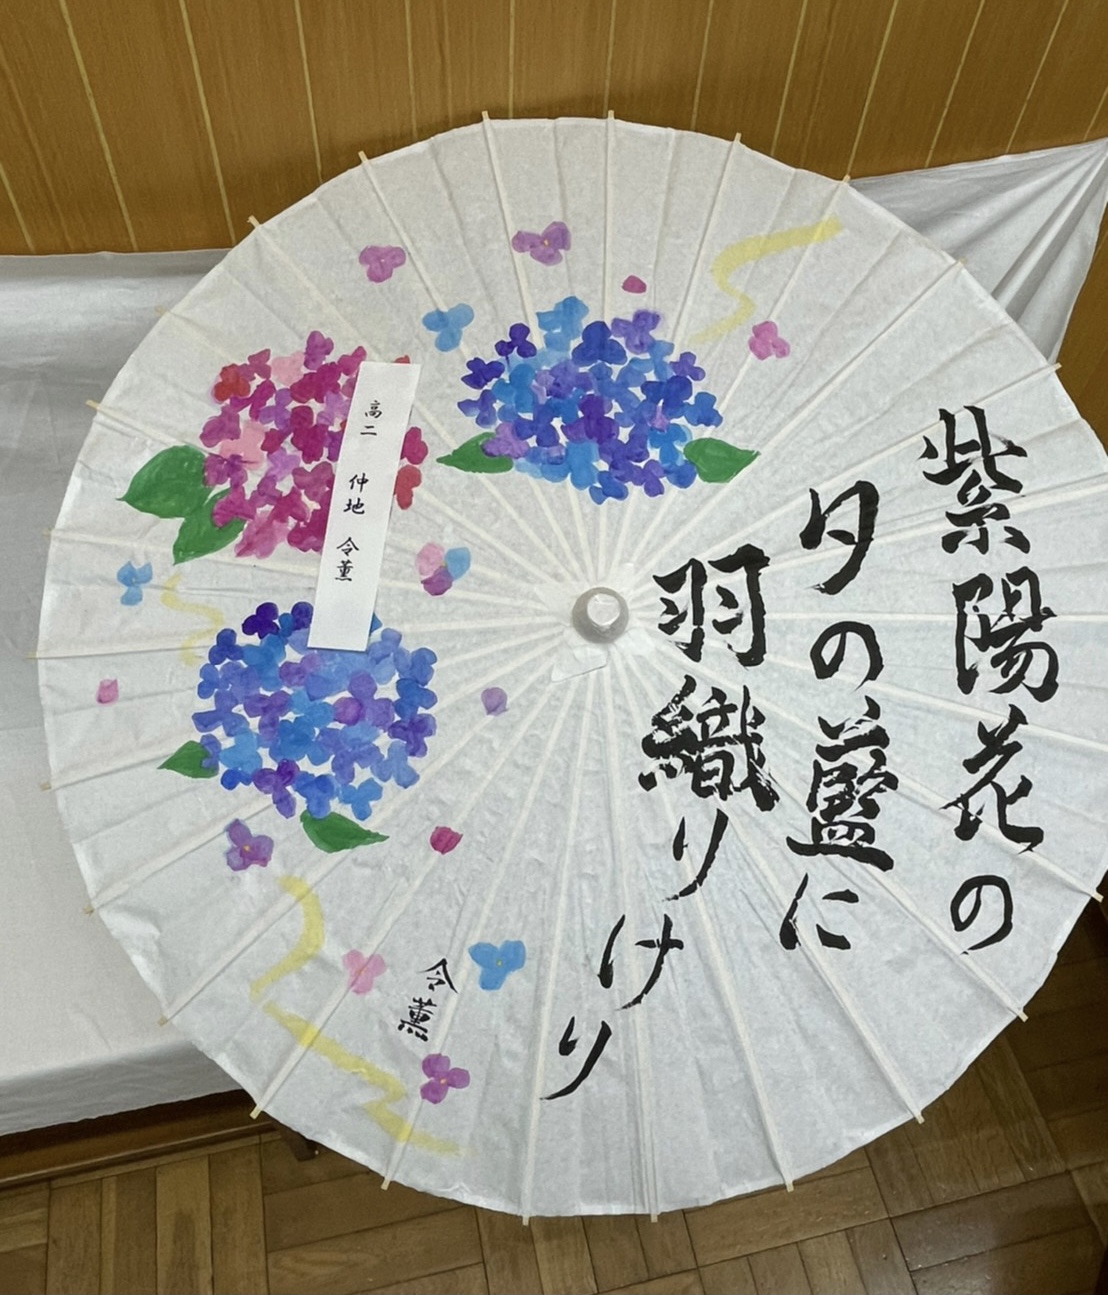 紫陽花の
夕の藍に
羽織りけり
令薫
高二 仲地 令薫